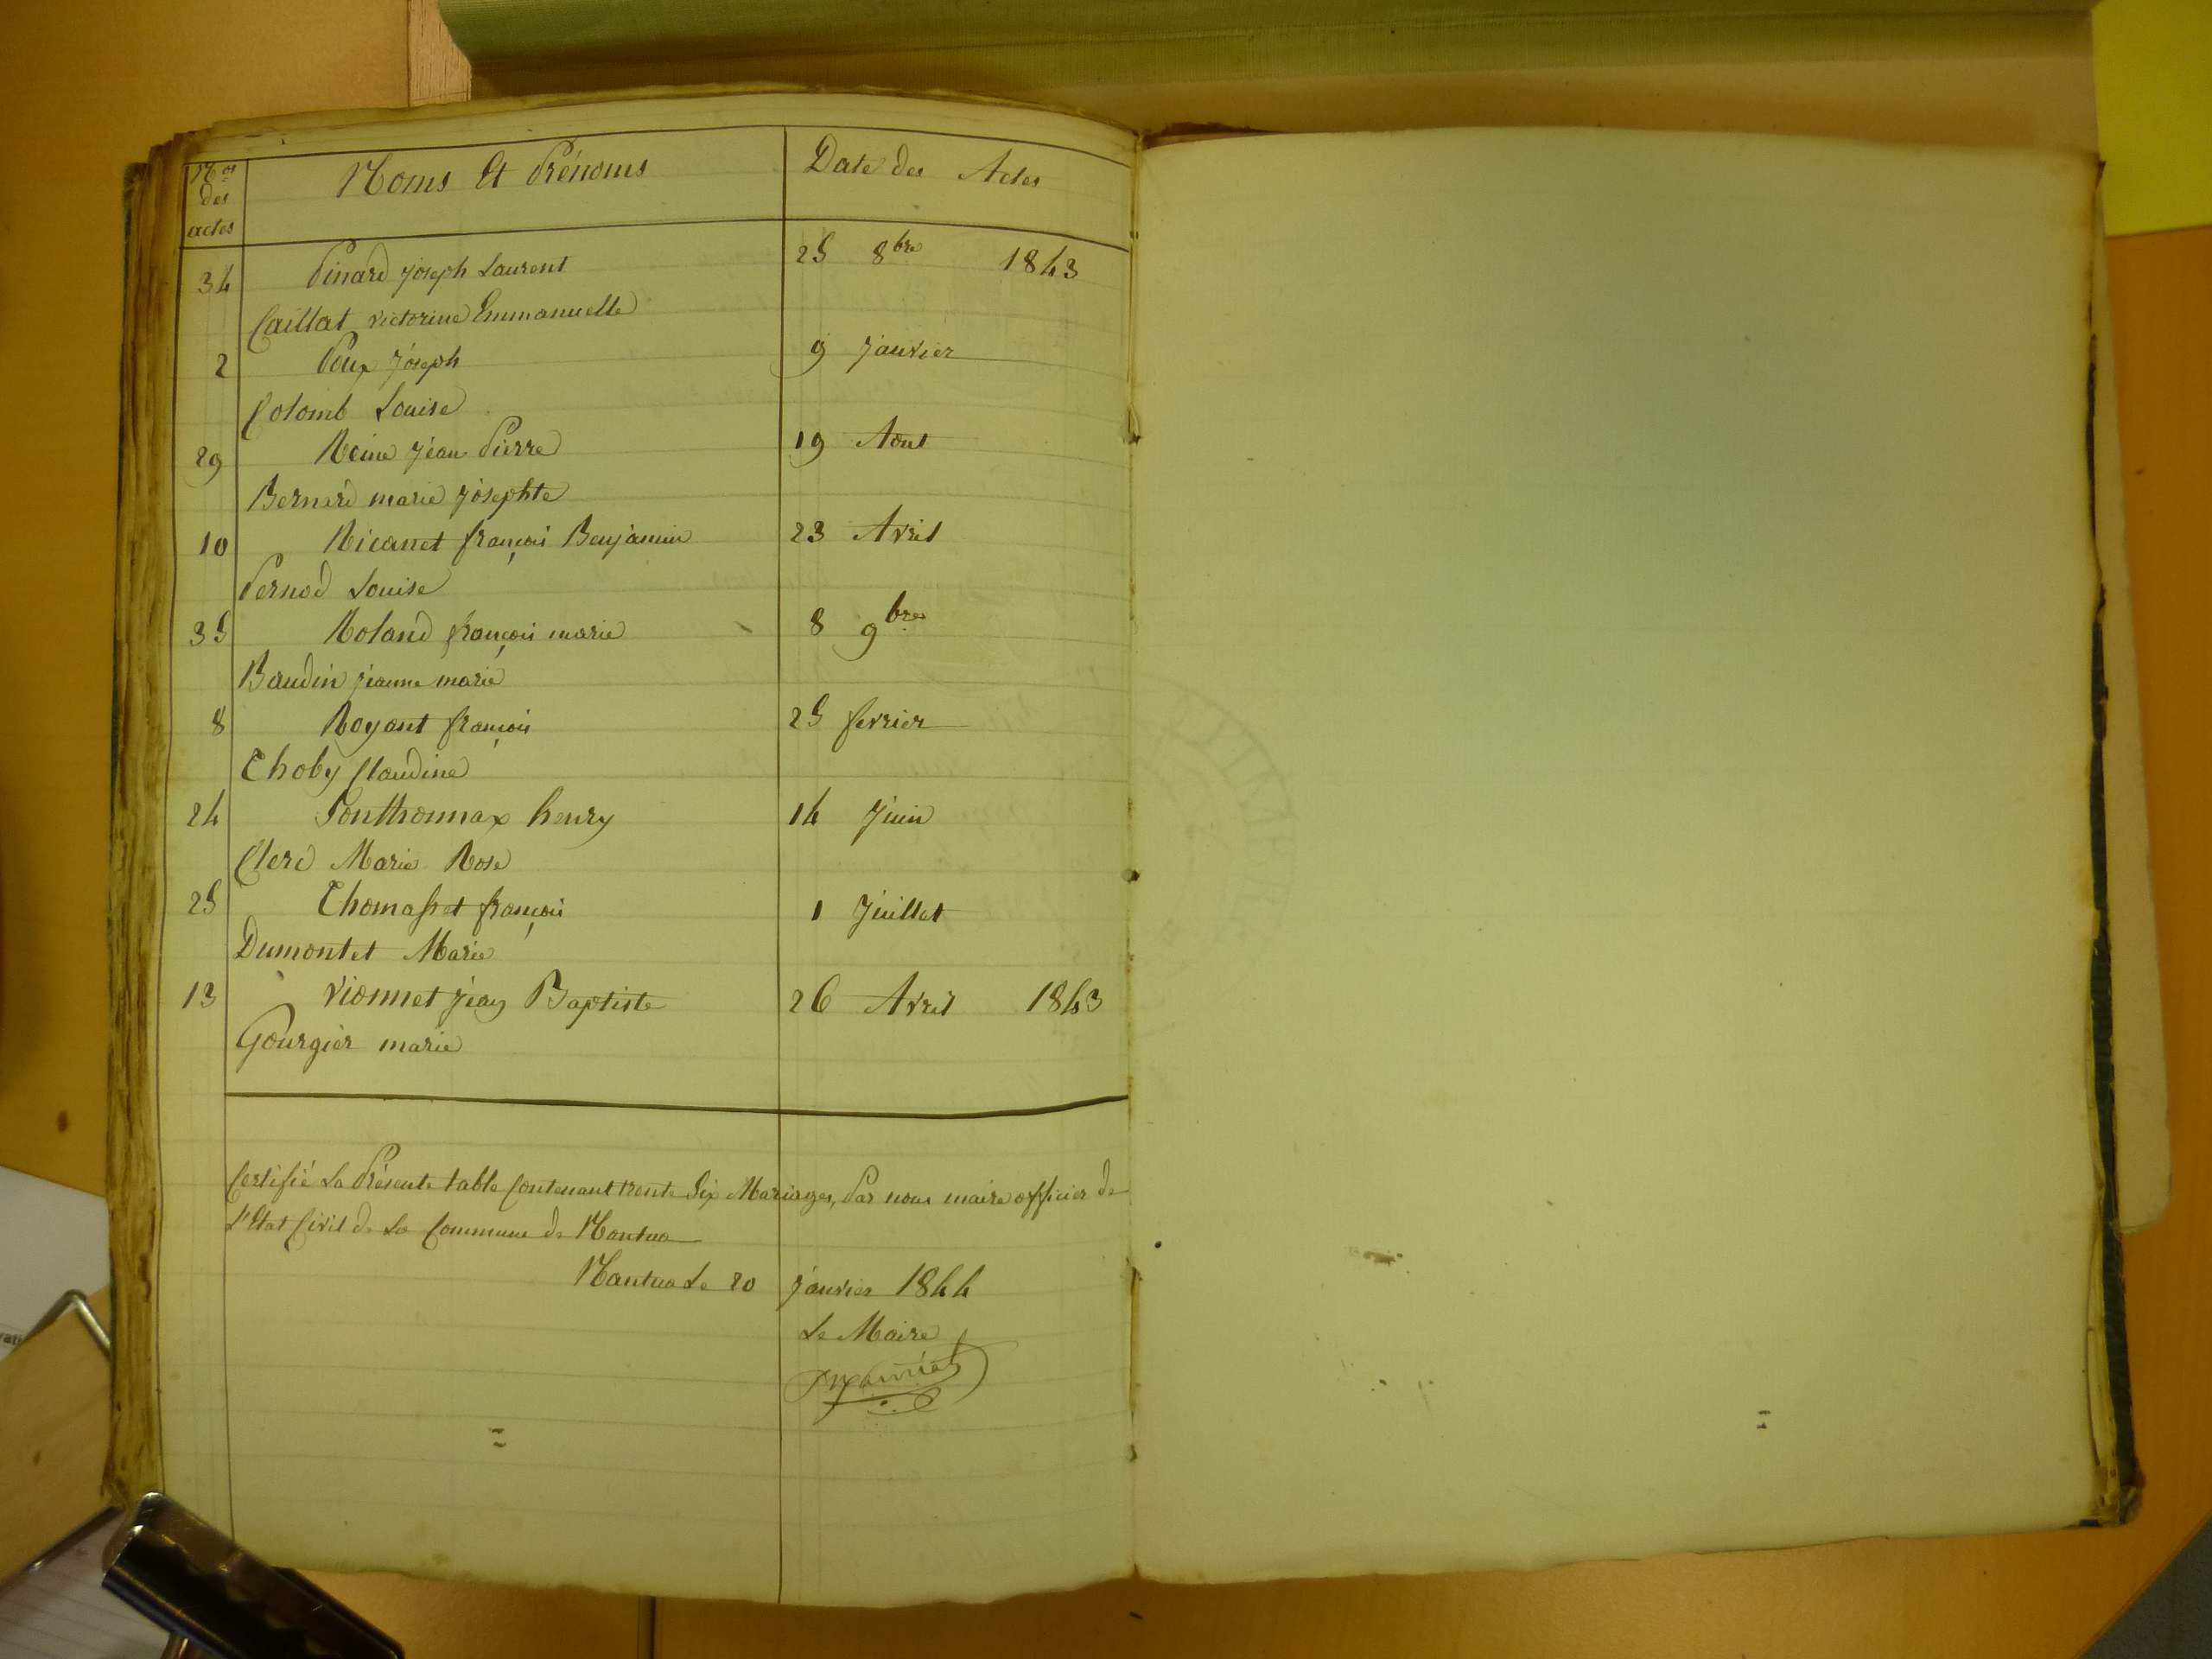 Nos des actes
Noms Et Prénoms
Date des Actes
34 Pinard joseph Laurent 25 8bre 1843
Caillat victorine Emmanuelle
2 Poux joseph 9 janvier
Colomb Louise
29 Reine jean Pierre 19 Aout
Bernard marie josephte
10 Ricanet françois Benjamin 23 Avril
Pernod Louise
35 Roland françois marie 8 9bre
Baudin jeanne marie
8 Royant françois 25 fevrier
Thoby Claudine
24 Sonthonnax henry 14 juin
Clerc Marie Rose
25 Thomasset françois 1 juillet
Dumontet Marie
13 vionnet jean Baptiste 26 Avril 1843
Gourgier marie
Certifié La Présente table Contenant trente Six Mariages, Par nous maire officier de
L'Etat Civil de La Commune de Nantua
Nantua Le 20 janvier 1844
Le Maire